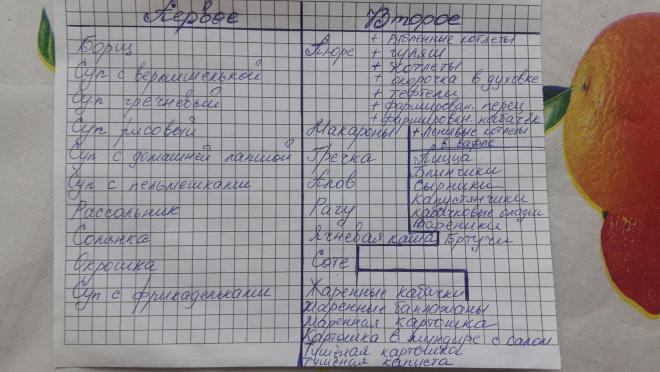 Первое
Борщ
Суп с вермишелькой
Суп гречневый
Суп рисовый
Суп с домашней лапшой
Суп с пельмешками
Рассольник
Солянка
Окрошка
Суп с фрикадельками
Второе
Пюре
+ Рубленные котлеты
+ гуляш
+ котлеты
+ окорочка в духовке
+ тефтели
+ фарширован. перец
+ фарширован. кабачек
Макароны
+ Ленивые котлеты
в вафле
Гречка
Плов
Рагу
Ячневая каша
Соте
Пицца
Блинчики
Сырники
Капустянчики
кабачковые оладьи
Вареники
Бртучи
Жаренные кабачки
Жаренные баклажаны
Жаренная картошка
Картошка в мундире с салом
Тушёная картошка
Тушёная капуста